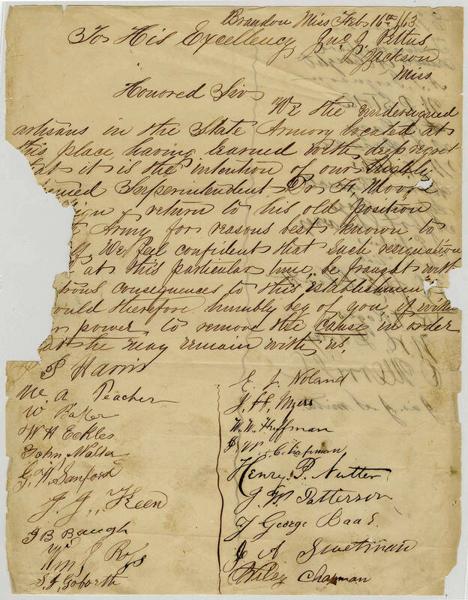 Brandon Miss Feb 16th /63
To His Excellency Jno. J. Pettus
Jackson
Miss
Honored Sir
We the undersigned
artisans in the State Armory located at
this place having learned with deep regret
that it is the intention of our highly
Superintendent
return to his old position
Army for reasons best known to
We feel confident that such resignation
at this particular time, be fraught with
consequences to this establishment
would therefore humbly beg of you if within
power, to remove the cause in order
he may remain with us.
Harris
M. A. Peacher
W Baker
W H Eckles
John
G. H. Sanford
J. J. Keen
J B Baugh
Wm
S. J. Goforth
E. J. Noland
J. H. Myers
W. W. Huffman
Chapman
Henry P. Nutter
G. W. Patterson
George Baas
J A Sweetman
Wiley Chapman